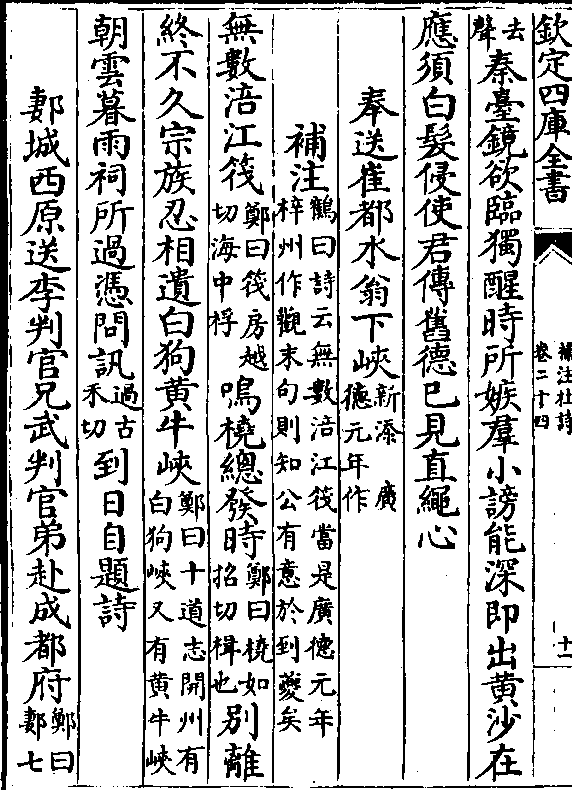 欽定四庫全書
補注杜詩
卷二十四
十一
去聲秦臺鏡欲臨獨醒時所嫉羣小謗能深即出黄沙在
應須白髮侵使君傳舊德已見直繩心
奉送崔都水翁下峽新添廣德元年作
補注鶴曰詩云無數涪江筏當是廣德元年梓州作觀末句則知公有意於到夔矣
無數涪江筏鄭曰筏房越切海中桴鳴橈總發時鄭曰橈如招切楫也别離
終不久宗族忍相遺白狗黄牛峽鄭曰十道志開州有白狗峽又有黄牛峽
朝雲暮雨祠所過憑問訊過古禾切到日自題詩
郪城西原送李判官兄武判官弟赴成都府鄭曰郪七